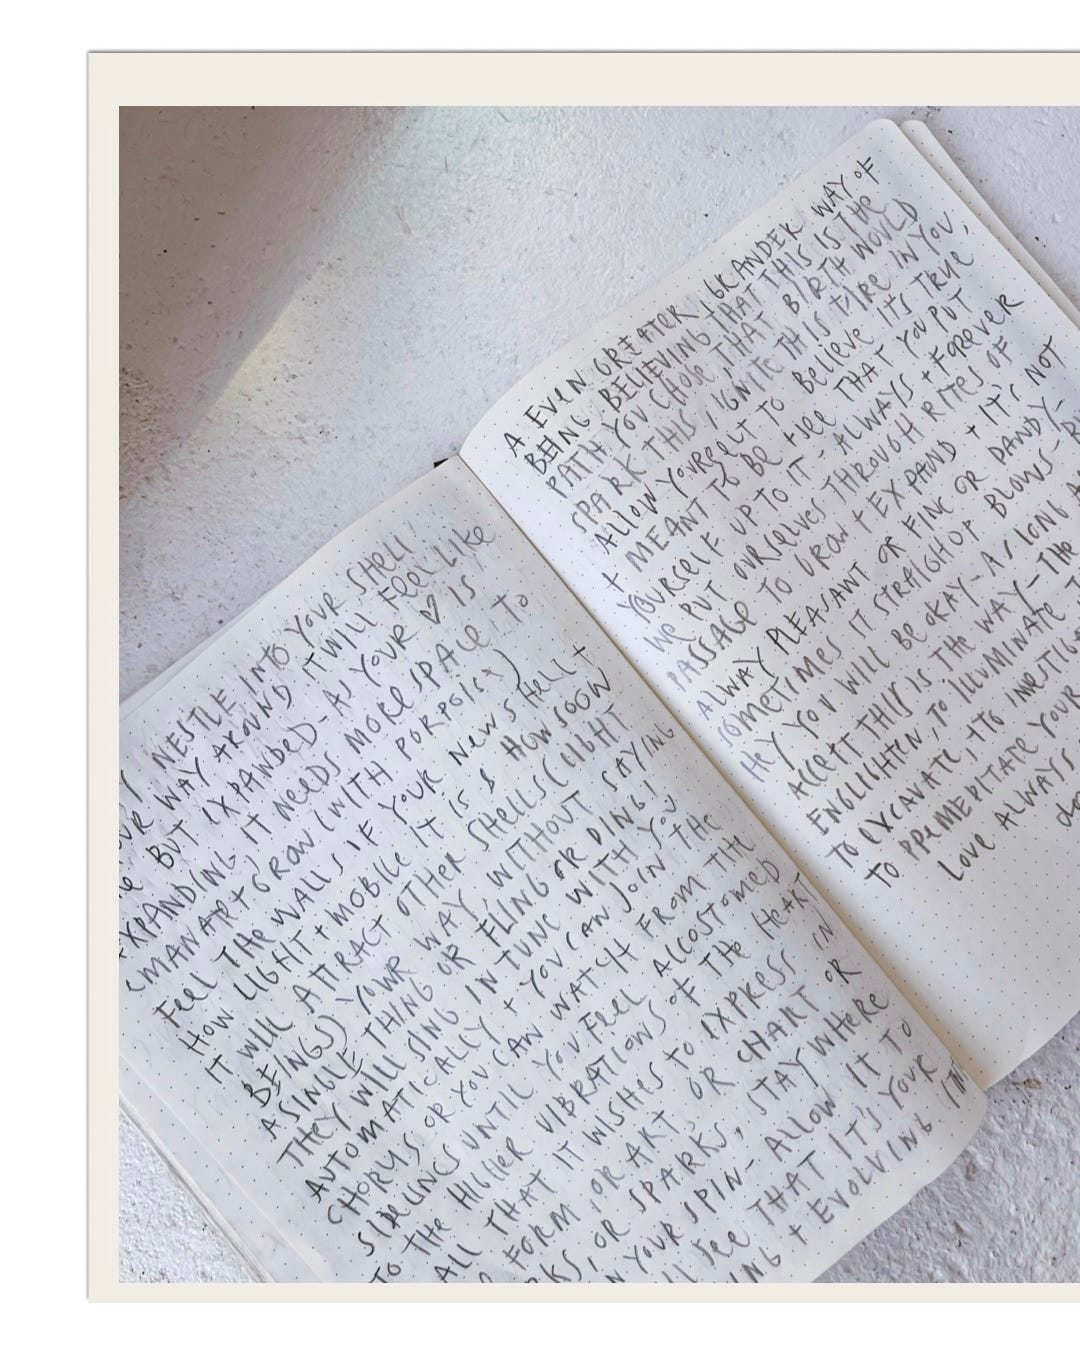 NESTLE INTO YOUR SHELL,
YOUR WAY AROUND IT WILL FEEL LIKE
BUT EXPANDED - AS YOUR ♡ IS
EXPANDING, IT NEEDS MORE SPACE TO
(MANART + GROW (WITH PORPOISE)
FEEL THE WALLS IF YOUR NEW SHELL +
HOW LIGHT + MOBILE IT IS & HOW SOON
IT WILL ATTRACT OTHER SHELLS (LIGHT
BEINGS) YOUR WAY, WITHOUT SAYING
A SINGLE THING OR FLING OR DING!
THEY WILL SING IN TUNE WITH YOU
AUTOMATICALLY + YOU CAN JOIN THE
CHORUS OR YOU CAN WATCH FROM THE
SIDELINES UNTIL YOU FEEL ACCOSTOMED
TO THE HIGHER VIBRATIONS OF THE HEART
ALL THAT IT WISHES TO EXPRESS IN
FORM, OR ART, OR CHART OR
OR SPARKS, STAY WHERE
YOUR SPIN - ALLOW IT TO
SEE THAT IT'S YOUR
+ EVOLVING.
A EVEN GREATER, GRANDER WAY OF
BEING, BELIEVING THAT THIS IS THE
PATH YOU CHOSE THAT BIRTH WOULD
SPARK THIS, IGNITE THIS FIRE IN YOU,
ALLOW YOURSELF TO BELIEVE IT'S TRUE
+ MEANT TO BE + SEE THAT YOU PUT
YOURSELF UP TO IT - ALWAYS + FOREVER
WE PUT OURSELVES THROUGH RITES OF
PASSAGE TO GROW + EXPAND + IT'S NOT
ALWAYS PLEASANT OR FINE OR DANDY -
SOMETIMES IT STRAIGHT UP BLOWS -
HEY YOU WILL BE OKAY - AS LONG AS
ACCEPT THIS IS THE WAY - THE
ENLIGHTEN, TO ILLUMINATE
TO EXCAVATE, + TO INVESTIGATE
TO PREMEDITATE YOUR
LOVE ALWAYS